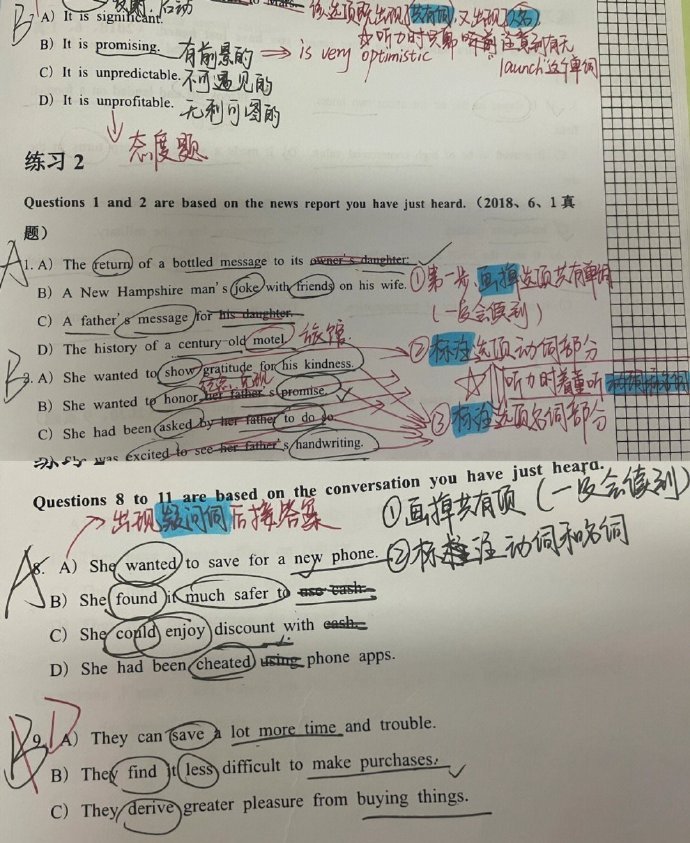 B A) It is significant.
该选项既出现共有词,又出现
B) It is promising. 有前景的 → is very optimistic
launch"这个单词
C) It is unpredictable. 不可遇见的
D) It is unprofitable. 无利可图的
态度题
练习 2
Questions 1 and 2 are based on the news report you have just heard.(2018、6、1 真
题)
A 1. A) The return of a bottled message to its owner's daughter.
B) A New Hampshire man's joke with friends on his wife. ①第一步,画掉选项共有单词
(一定会读到)
C) A father's message for his daughter.
D) The history of a century old motel. 旅馆
②标注选项动词部分
B 2. A) She wanted to show gratitude for his kindness.
听力时着重听
B) She wanted to honor her father's promise.
③标注选项名词部分
C) She had been asked by her father to do so.
D) She was excited to see her father's handwriting.
Questions 8 to 11 are based on the conversation you have just heard.
出现疑问词后接答案
①画掉共有项(一定会读到)
A 8. A) She wanted to save for a new phone. ②标注动词和名词
B) She found it much safer to use cash.
C) She could enjoy discount with cash.
D) She had been cheated using phone apps.
B D 9. A) They can save a lot more time and trouble.
B) They find it less difficult to make purchases.
C) They derive greater pleasure from buying things.